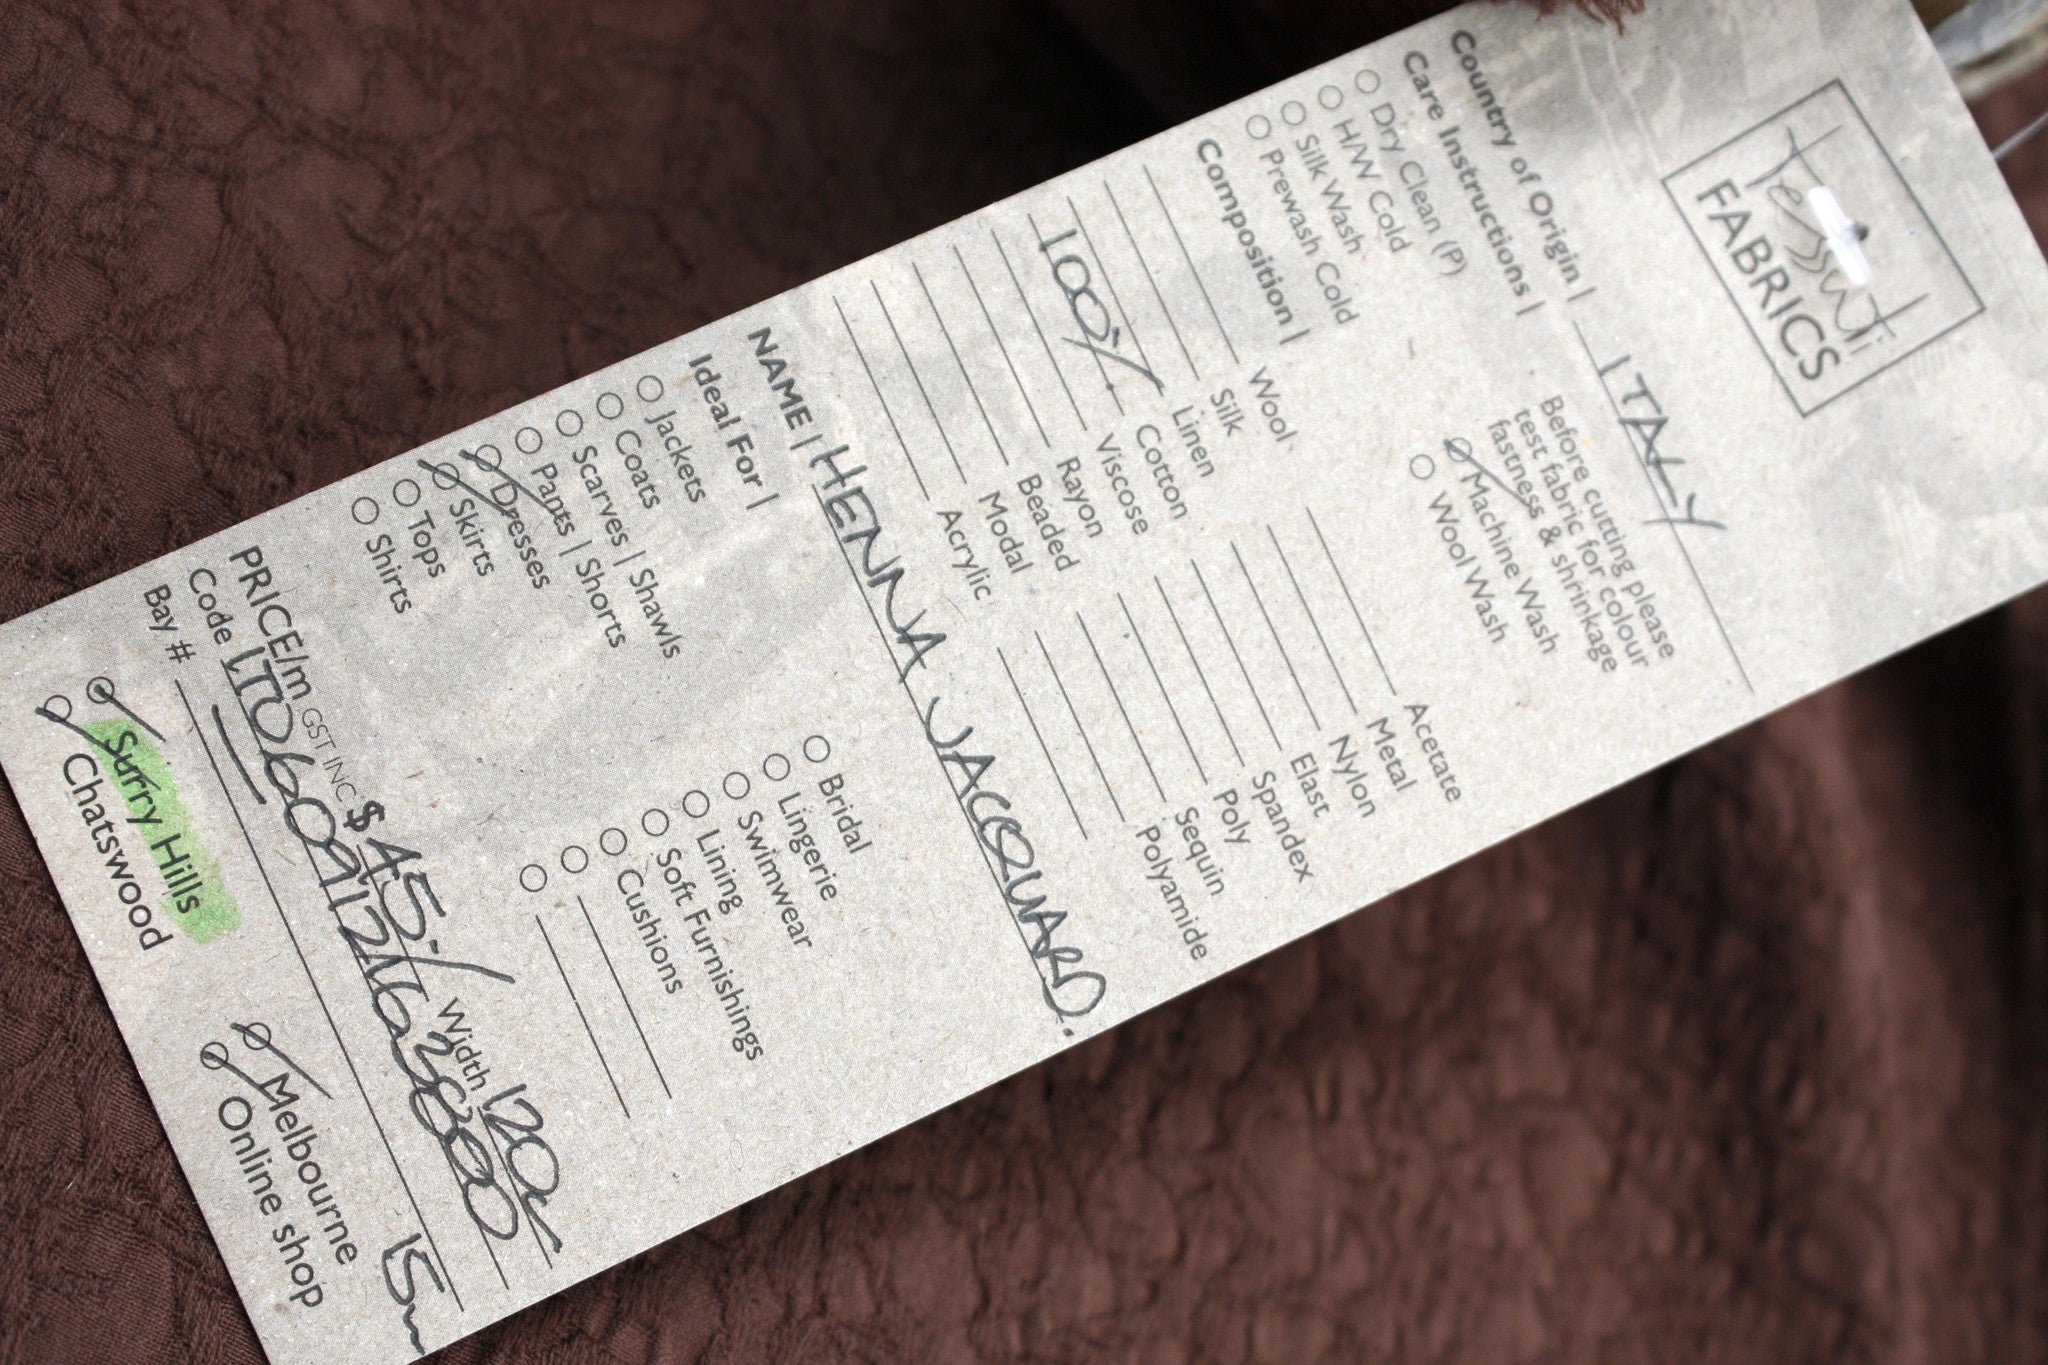 Tessuti
FABRICS
Country of Origin | ITALY
Care Instructions |
Before cutting please
test fabric for colour
fastness & shrinkage
Dry Clean (P)
H/W Cold
Silk Wash
Prewash Cold
Machine Wash
Wool Wash
Composition |
Wool
Silk
Linen
100% Cotton
Viscose
Rayon
Beaded
Modal
Acrylic
Acetate
Metal
Nylon
Elast
Spandex
Poly
Sequin
Polyamide
NAME | HENNA JACQUARD.
Ideal For |
Jackets
Coats
Scarves | Shawls
Pants | Shorts
Dresses
Skirts
Tops
Shirts
Bridal
Lingerie
Swimwear
Lining
Soft Furnishings
Cushions
PRICE/m GST INC $45.- Width 120
Code
Bay # 15m
Surry Hills
Chatswood
Melbourne
Online shop